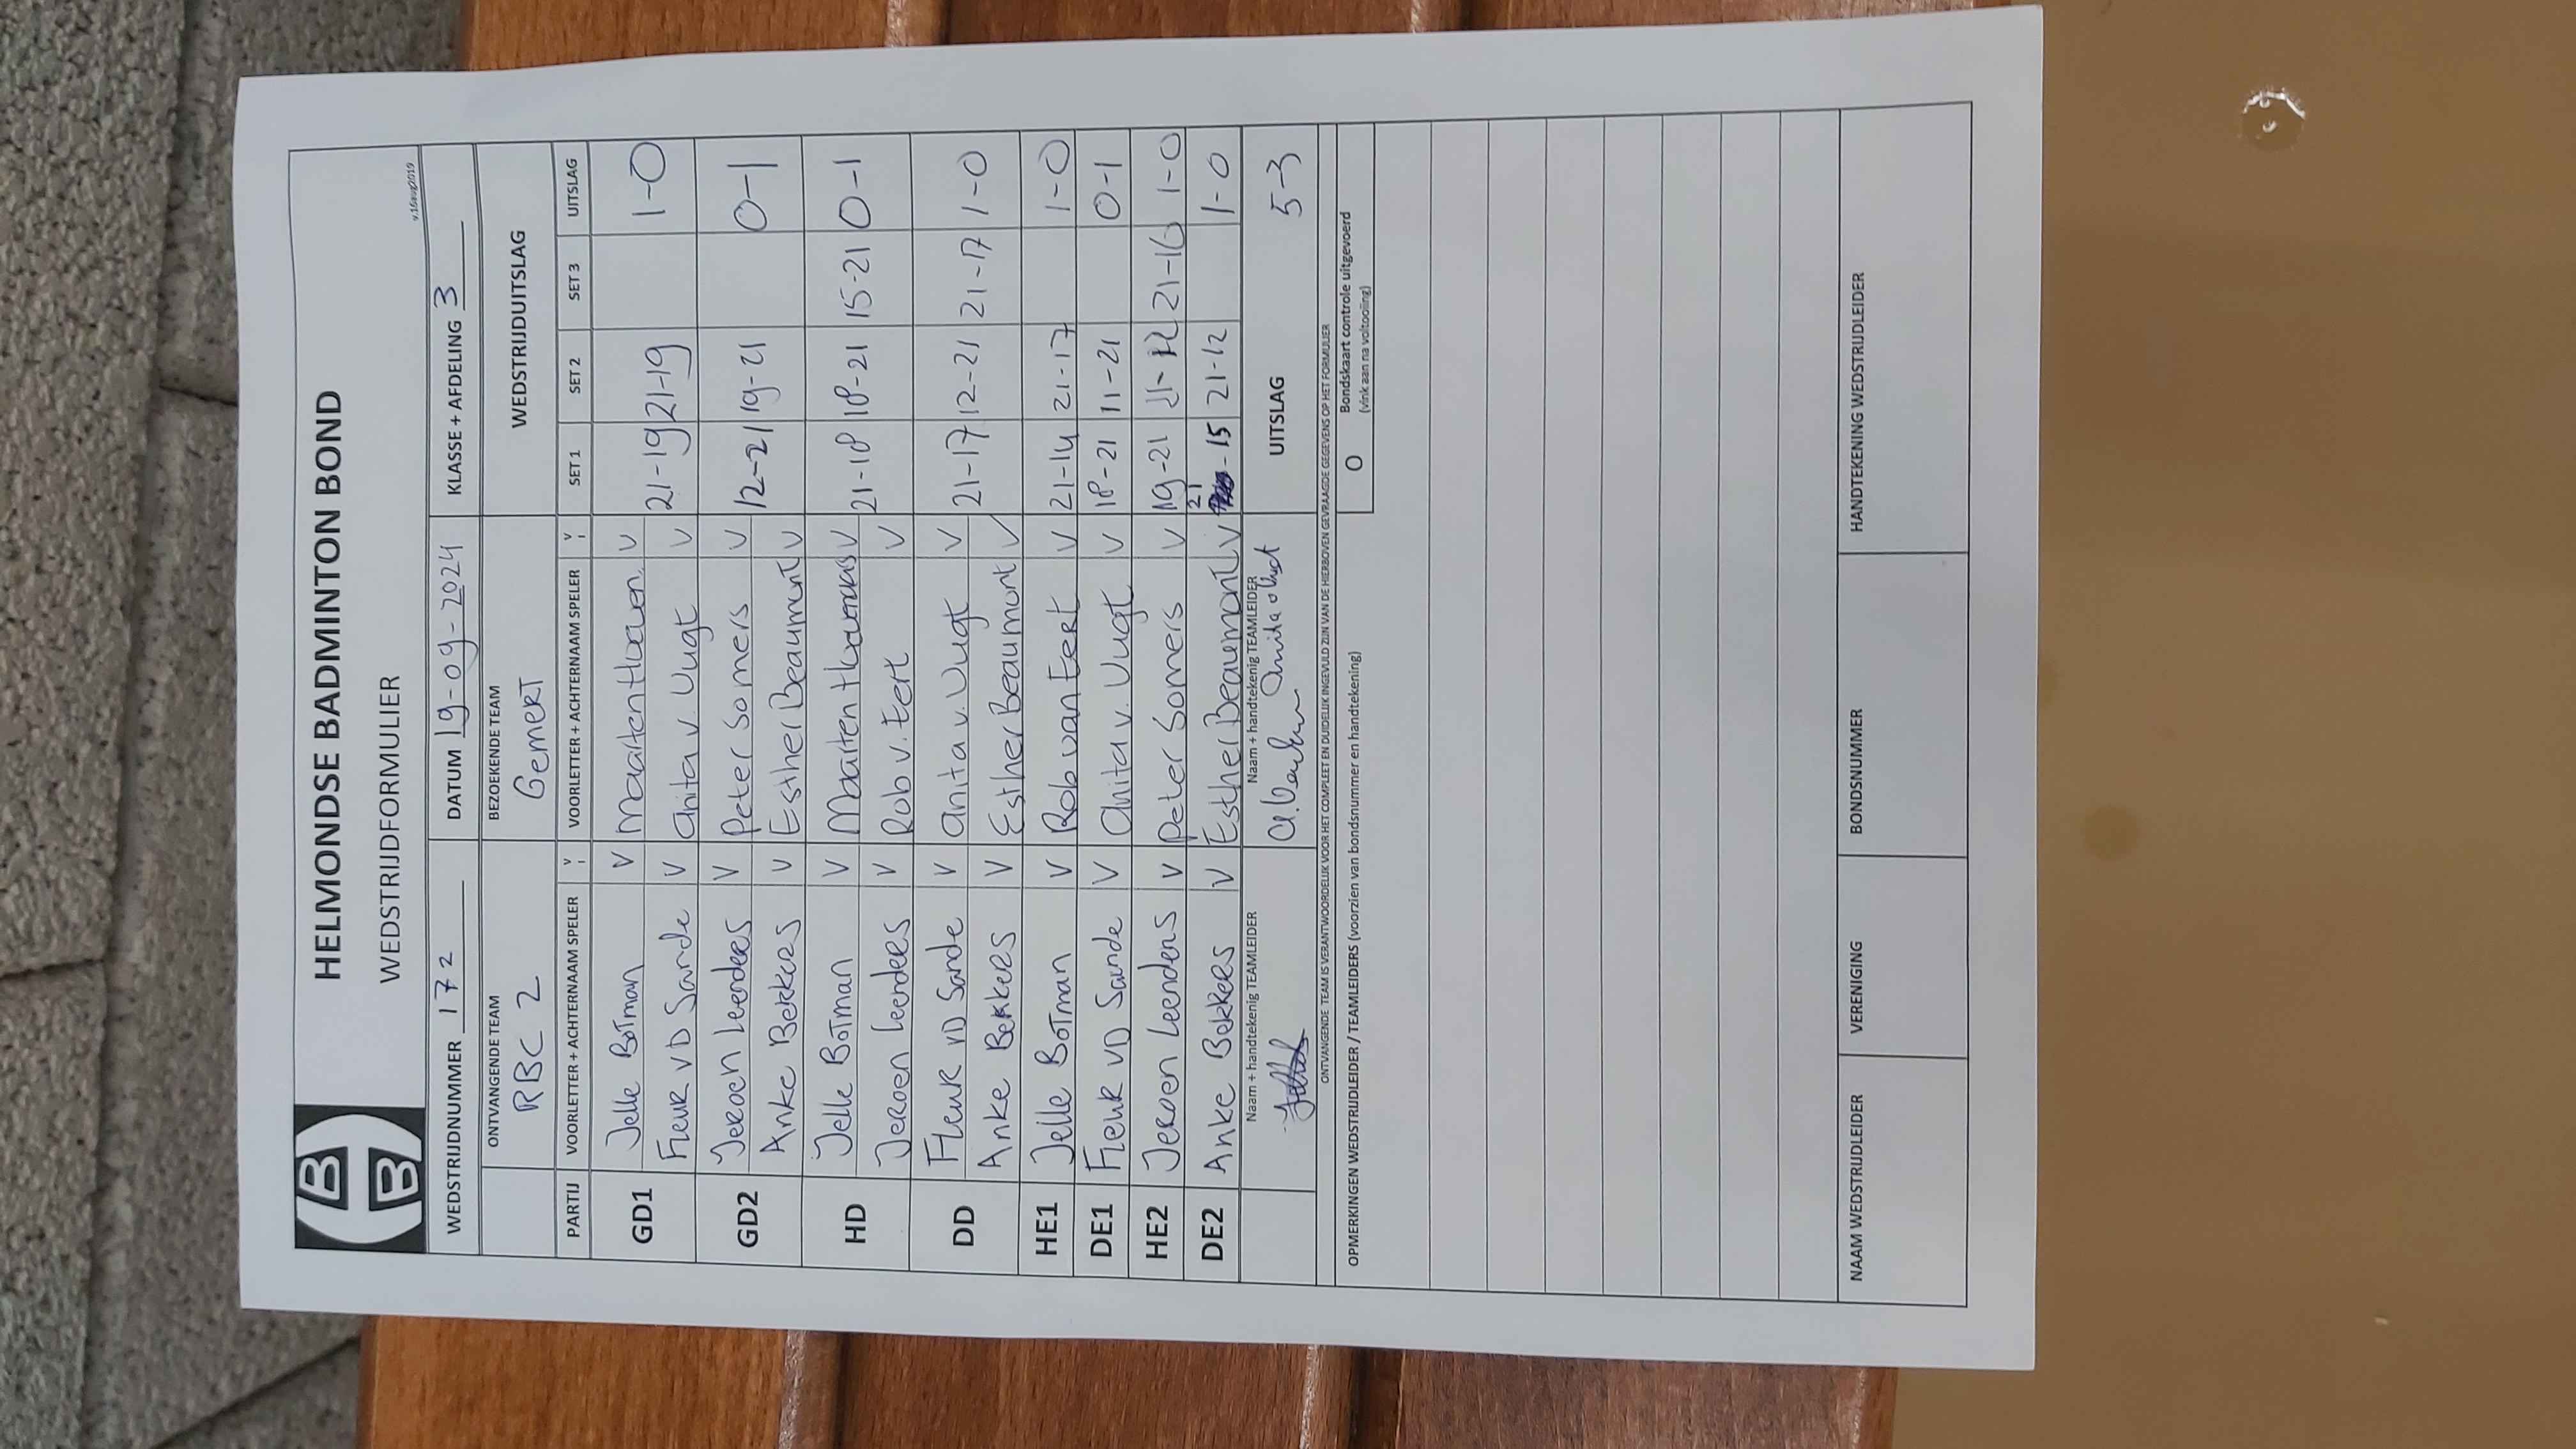 HELMONDSE BADMINTON BOND
WEDSTRIJDFORMULIER
v.16aug2019
WEDSTRIJDNUMMER 172 DATUM 19-09-2024 KLASSE + AFDELING 3
ONTVANGENDE TEAM BEZOEKENDE TEAM WEDSTRIJDUITSLAG
RBC 2 Gemert
PARTIJ VOORLETTER + ACHTERNAAM SPELER V VOORLETTER + ACHTERNAAM SPELER V SET 1 SET 2 SET 3 UITSLAG
GD1 Jelle Botman V Maarten V 21-19 21-19 1-0
Fleur vD Sande V Anita v. Vugt V
GD2 Jeroen Leenders V Peter Somers V 12-21 19-21 0-1
Anke Bekkers V Esther Beaumont V
HD Jelle Botman V Maarten V 21-18 18-21 15-21 0-1
Jeroen Leenders V Rob v. Eert V
DD Fleur vD Sande V Anita v. Vugt V 21-17 12-21 21-17 1-0
Anke Bekkers V Esther Beaumont V
HE1 Jelle Botman V Rob van Eert V 21-14 21-17 1-0
DE1 Fleur vD Sande V Anita v. Vugt V 18-21 11-21 0-1
HE2 Jeroen Leenders V Peter Somers V 19-21 21-12 21-16 1-0
DE2 Anke Bekkers V Esther Beaumont V 21-15 21-12 1-0
Naam + handtekenig TEAMLEIDER Naam + handtekenig TEAMLEIDER UITSLAG 5-3
Anita v Vugt
ONTVANGENDE TEAM IS VERANTWOORDELIJK VOOR HET COMPLEET EN DUIDELIJK INGEVULD ZIJN VAN DE HIERBOVEN GEVRAAGDE GEGEVENS OP HET FORMULIER
OPMERKINGEN WEDSTRIJDLEIDER / TEAMLEIDERS (voorzien van bondsnummer en handtekening) O Bondskaart controle uitgevoerd
(vink aan na voltooiing)
NAAM WEDSTRIJDLEIDER VERENIGING BONDSNUMMER HANDTEKENING WEDSTRIJDLEIDER